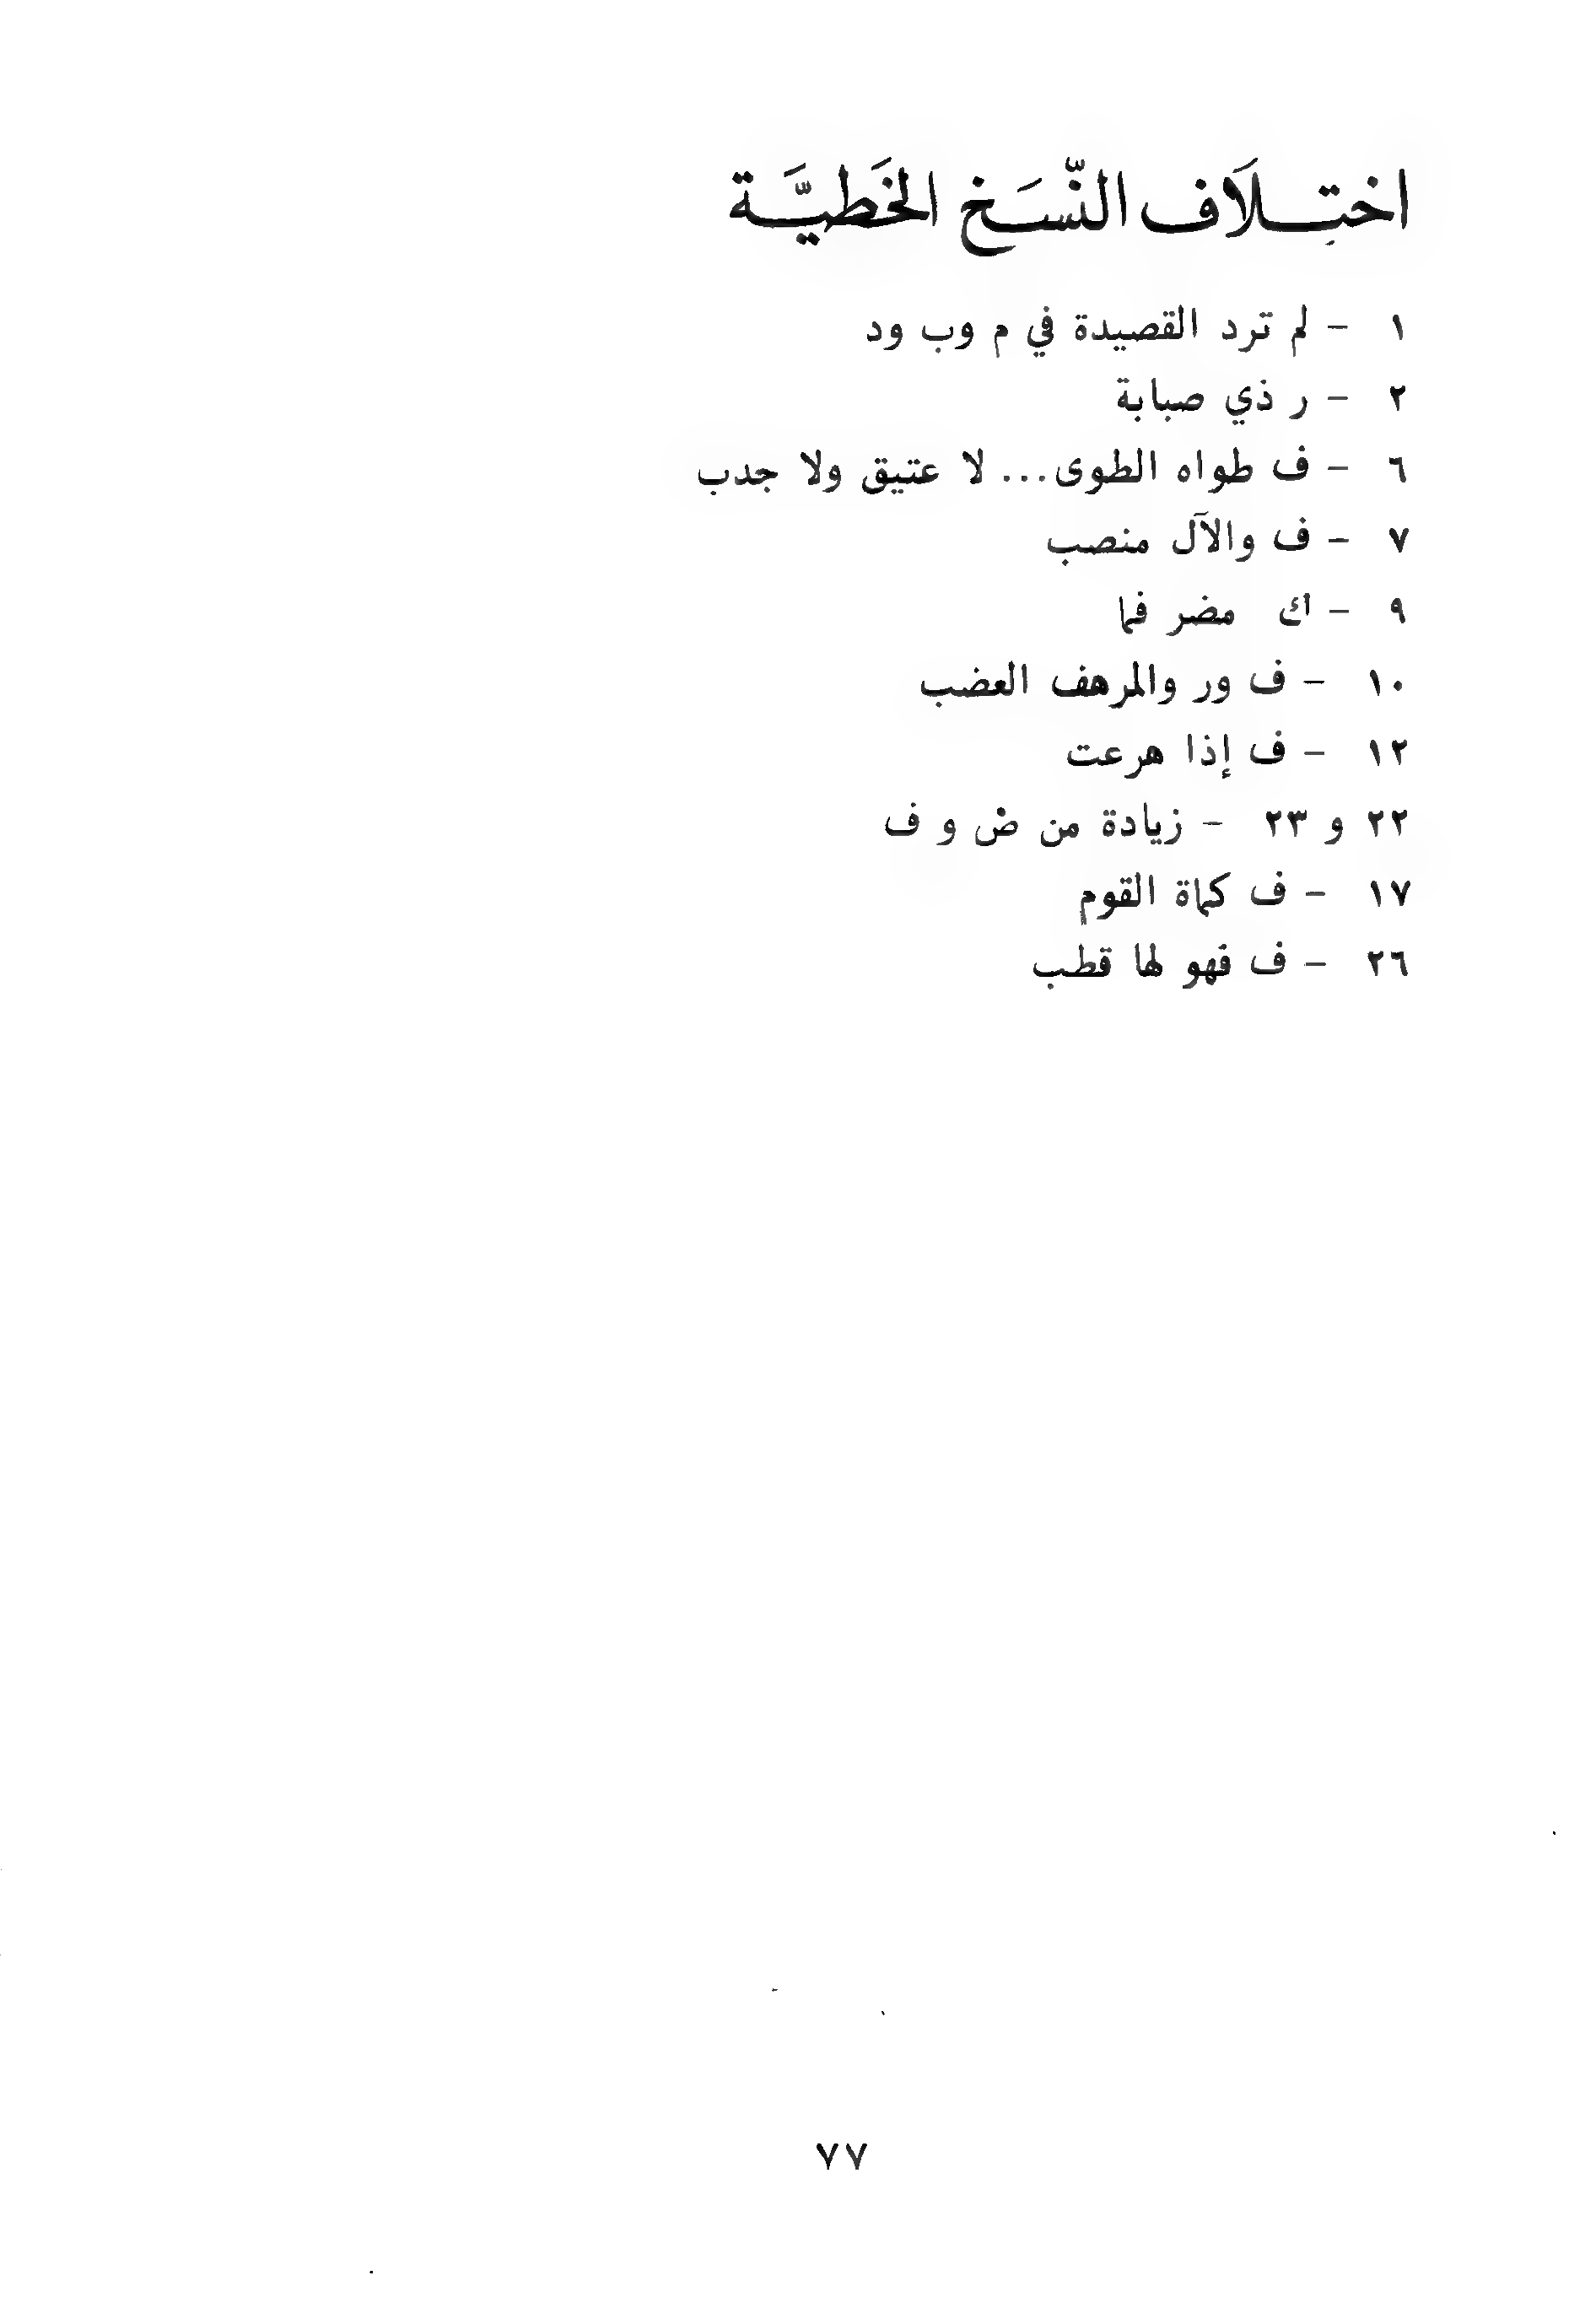 اختِلَاف النّسَخ الخَطيَّة
١ - لم ترد القصيدة في م وب ود
٢ - ر ذي صبابة
٦ - ف طواه الطوى... لا عتيق ولا جدب
٧ - ف والآل منصب
٩ - ك مضر فما
١٠ - ف ور والمرهف العضب
١٢ - ف إذا هرعت
٢٢ و ٢٣ - زيادة من ض و ف
١٧ - ف كماة القوم
٢٦ - ف فهو لها قطب
٧٧